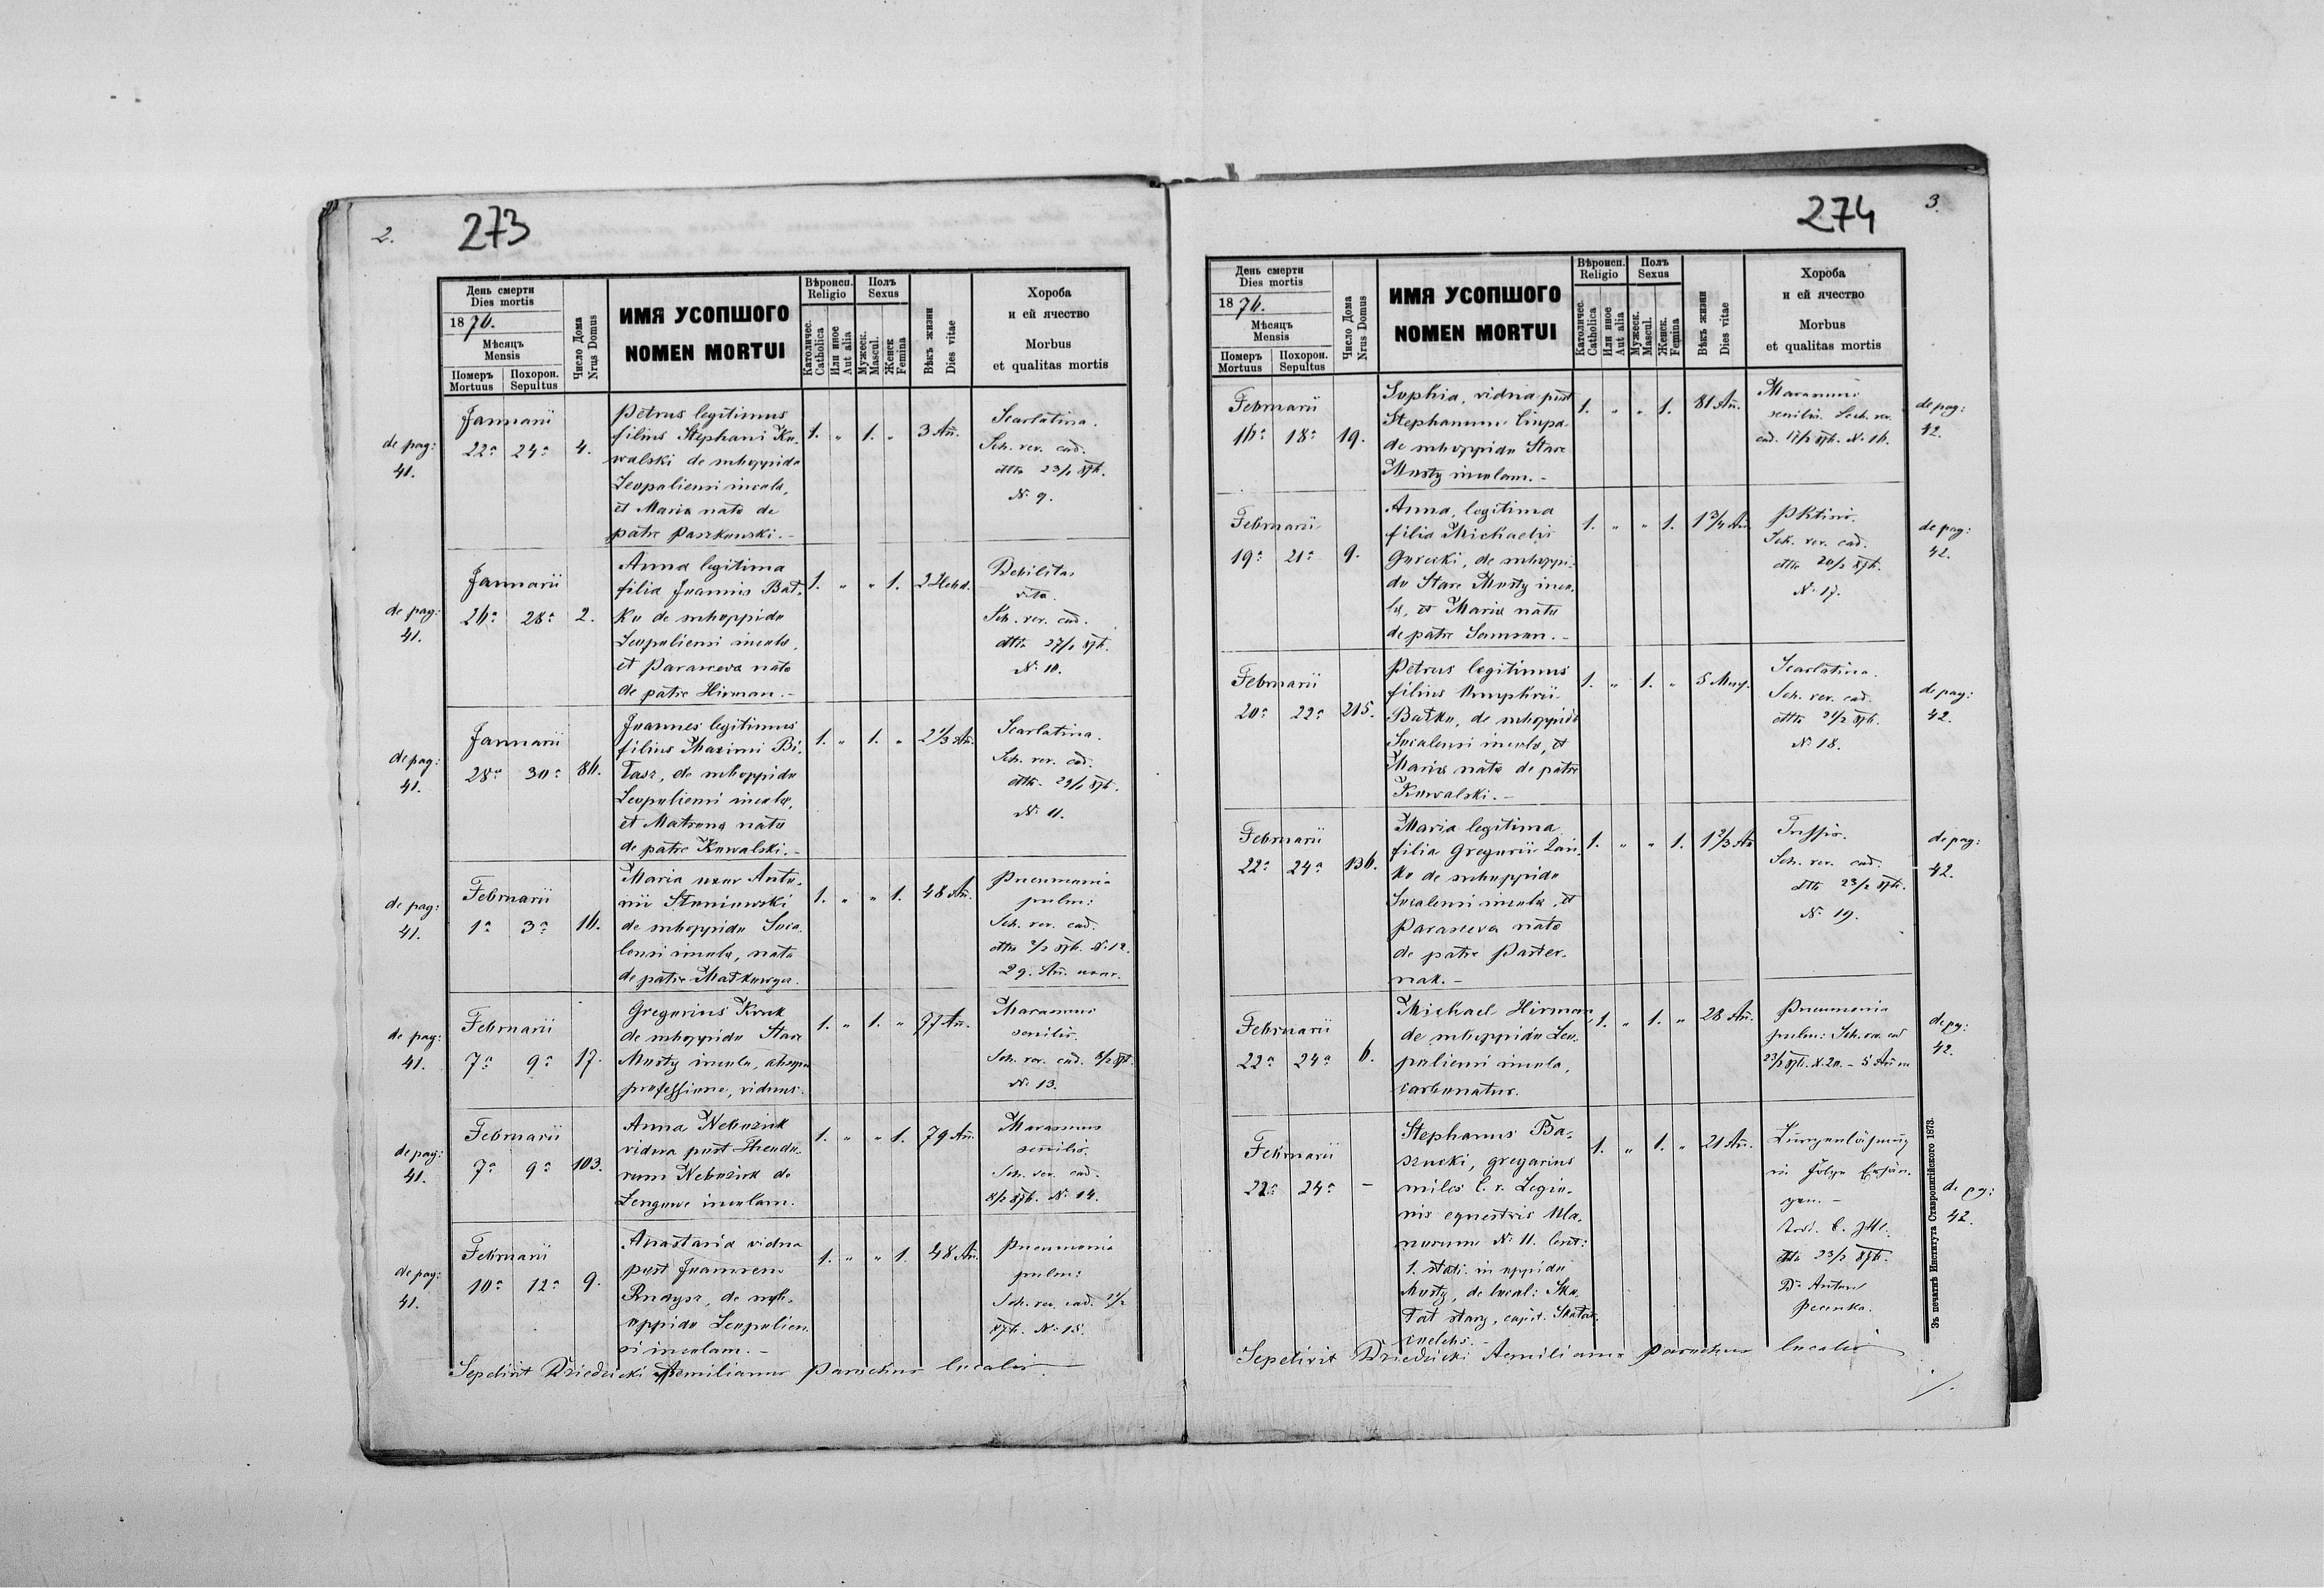 2.
273
День смерти
Dies mortis
1876.
Мѣсяцъ
Mensis
Померъ
Mortuus
Похорон.
Sepultus
Число Дома
Nrus Domus
ИМЯ УСОПШОГО
NOMEN MORTUI
Вѣроисп.
Religio
Католичес.
Catholica
Или иное
Aut alia
Полъ
Sexus
Мужеск.
Mascul.
Женск
Femina
Вѣкъ жизни
Dies vitae
Хороба
и ей ячество
Morbus
et qualitas mortis
de pag: 41.
Januarii
22a 24a 4.
Petrus legitimus
filius Stephani Ko-
walski de suboppido
Leopoliensi incola,
et Maria nata de
patre Paszkowski.-
1. " 1. " 3 An.
Scarlatina.
Sch. rev. cad.
dtto 23/1 876.
No 9.
de pag: 41.
Januarii
26a 28a 2.
Anna legitima
filia Joannis Bał-
ko de suboppido
Leopoliensi incola,
et Parasceva nata
de patre Hirman.-
1. " " 1. 2 Hebd.
Debilitas
vitae.
Sch. rev. cad.
dtto 27/1 876.
No 10.
de pag: 41.
Januarii
28a 30a 86.
Joannes legitimus
filius Maximi Bi-
łasz, de suboppido
Leopoliensi incola,
et Matrona nata
de patre Kowalski.-
1. " 1. " 2 1/3 An.
Scarlatina.
Sch. rev. cad.
dtto. 29/1 876.
No 11.
de pag: 41.
Februarii
1a 3a 16.
Maria uxor Anto-
nii Słoniowski
de suboppido Soca-
lensi incola, nata
de patre
1. " " 1. 48 An.
Pneumonia
pulm:
Sch. rev. cad.
dtto 2/2 876. No 12.
29. An. uxor.
de pag: 41.
Februarii
7a 9a 17.
Gregorius Kruk
de suboppido Stare
Mosty incola,
professione, viduus.
1. " 1. " 77 An.
Marasmus
senilis.
Sch. rev. cad. 8/2 876.
No 13.
de pag: 41.
Februarii
7a 9a 103.
Anna Nebożuk
vidua post Theodo-
rum Nebożuk de
Lengowe incolam.
1. " " 1. 79 An.
Marasmus
senilis.
Sch. rev. cad.
8/2 876. No 14.
de pag: 41.
Februarii
10a 12a 9.
Anastasia vidua
post Joannem
Rudysz, de sub-
oppido Leopolien-
si incolam.-
1. " " 1. 48 An.
Pneumonia
pulm:
Sch. rev. cad. 11/2
876. No 15.
Sepelivit Dziedzicki Aemilianus parochus localis.
3.
274
День смерти
Dies mortis
1876.
Мѣсяцъ
Mensis
Померъ
Mortuus
Похорон.
Sepultus
Число Дома
Nrus Domus
ИМЯ УСОПШОГО
NOMEN MORTUI
Вѣроисп.
Religio
Католичес.
Catholica
Или иное
Aut alia
Полъ
Sexus
Мужеск.
Mascul.
Женск.
Femina
Вѣкъ жизни
Dies vitae
Хороба
и ей ячество
Morbus
et qualitas mortis
Februarii
16a 18a 19.
Sophia, vidua post
Stephanum Ciupa
de suboppido Stare
Mosty incolam.-
1. " " 1. 81 An.
Marasmus
senilis. Sch. rev.
cad. 17/2 876. No 16.
de pag: 42.
Februarii
19a 21a 9.
Anna, legitima
filia Michaelis
Gorecki, de suboppi-
do Stare Mosty inco-
la, et Maria nata
de patre Samson.-
1. " " 1. 1 3/4 An
Phtisis.
Sch. rev. cad.
dtto 20/2 876.
No 17.
de pag: 42.
Februarii
20a 22a 215.
Petrus legitimus
filius Onuphrii
Bałko, de suboppido
Socalensi incola, et
Maria nata de patre
Kowalski.-
1. " 1. " 5 Mens.
Scarlatina.
Sch. rev. cad.
dtto 21/2 876.
No 18.
de pag: 42.
Februarii
22a 24a 136.
Maria legitima
filia Gregorii
ko de suboppido
Socalensi incola, et
Parasceva nata
de patre Paster-
nak.-
1. " " 1. 1 2/3 An
Tussis.
Sch. rev. cad.
dtto 23/2 876.
No 19.
de pag: 42.
Februarii
22a 24a 6.
Michael Hirman,
de suboppido Leo-
poliensi incola,
carbonator.
1. " 1. " 28 An.
Pneumonia
pulm: Sch. rev. cad
23/2 876. N. 20. - 5 An
de pg: 42.
Februarii
22a 24a -
Stephanus Ba-
szucki, gregarius
miles c. r. Legio-
nis equestris Ula-
norum No 11.
1. stati. in oppido
Mosty, de local: Ska-
łat stary, capit. Skałat.
1. " 1. " 21 An.
Lungenlähmung
in Folge
dtto 23/2 876.
Dr Anton
Pecenka.
de pg: 42.
Sepelivit Dziedzicki Aemilianus parochus localis
Зъ печатнѣ Института Ставропигійского 1873.